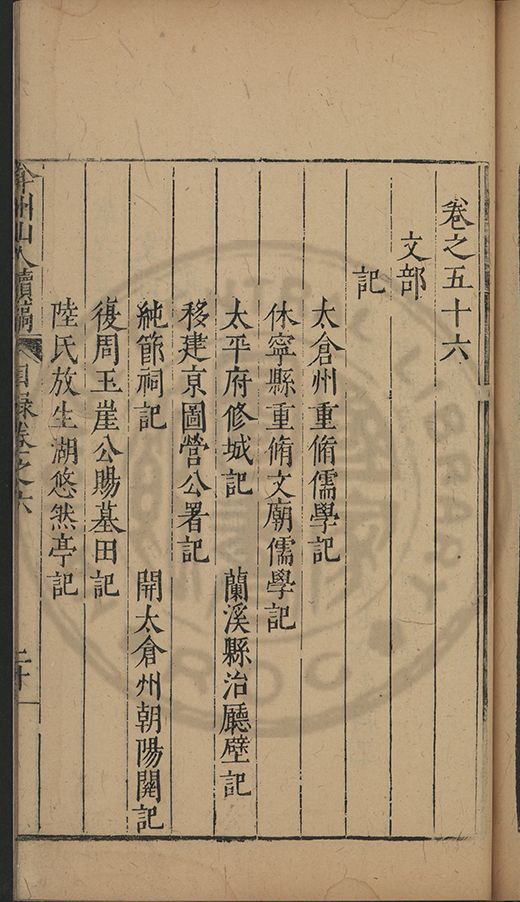 卷之五十六
文部
記
太倉州重脩儒學記
休寧縣重脩文廟儒學記
太平府修城記 蘭溪縣治廳壁記
移建京圖營公署記
純節祠記 開太倉州朝陽関記
復周玉崖公賜墓田記
陸氏放生湖悠然亭記
弇州山人續稿 目錄卷之六